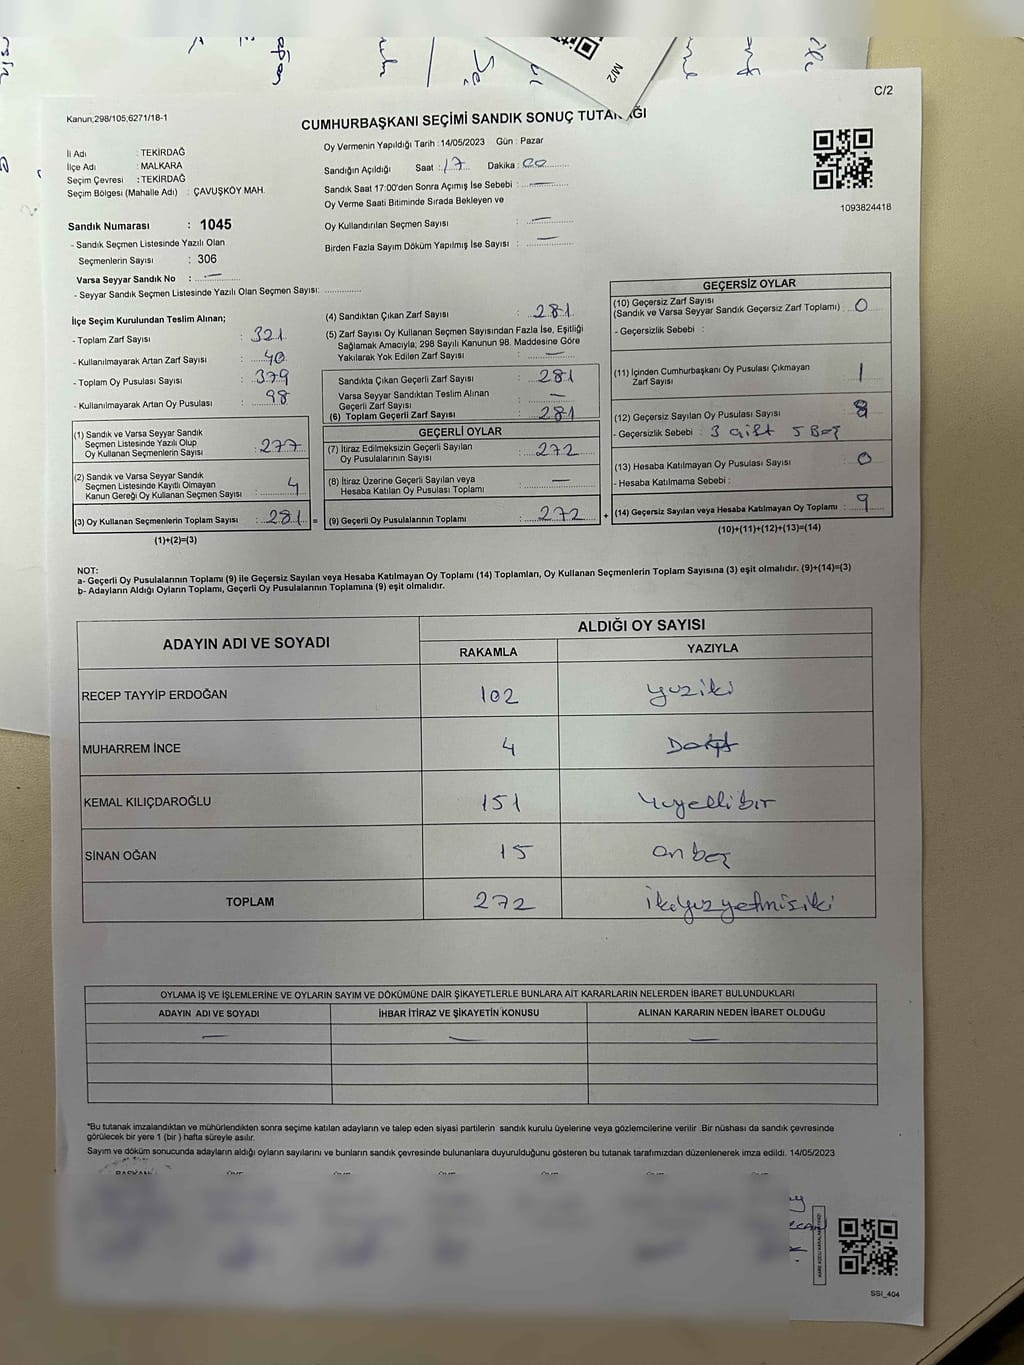 C/2
M/2
Kanun;298/105,6271/18-1
CUMHURBAŞKANI SEÇİMİ SANDIK SONUÇ TUTANAĞI
İl Adı : TEKİRDAĞ
İlçe Adı : MALKARA
Seçim Çevresi : TEKİRDAĞ
Seçim Bölgesi (Mahalle Adı) : ÇAVUŞKÖY MAH.
Oy Vermenin Yapıldığı Tarih : 14/05/2023 Gün : Pazar
Sandığın Açıldığı Saat : 17 Dakika : 00
Sandık Saat 17:00'den Sonra Açımış İse Sebebi : —
Oy Verme Saati Bitiminde Sırada Bekleyen ve
Oy Kullandırılan Seçmen Sayısı : —
Birden Fazla Sayım Döküm Yapılmış İse Sayısı : —
1093824418
Sandık Numarası : 1045
- Sandık Seçmen Listesinde Yazılı Olan
Seçmenlerin Sayısı : 306
Varsa Seyyar Sandık No : —
- Seyyar Sandık Seçmen Listesinde Yazılı Olan Seçmen Sayısı:
İlçe Seçim Kurulundan Teslim Alınan;
- Toplam Zarf Sayısı : 321
- Kullanılmayarak Artan Zarf Sayısı : 40
- Toplam Oy Pusulası Sayısı : 379
- Kullanılmayarak Artan Oy Pusulası : 98
(1) Sandık ve Varsa Seyyar Sandık
Seçmen Listesinde Yazılı Olup
Oy Kullanan Seçmenlerin Sayısı : 277
(2) Sandık ve Varsa Seyyar Sandık
Seçmen Listesinde Kayıtlı Olmayan
Kanun Gereği Oy Kullanan Seçmen Sayısı : 4
(3) Oy Kullanan Seçmenlerin Toplam Sayısı : 281 =
(1)+(2)=(3)
(4) Sandıktan Çıkan Zarf Sayısı : 281
(5) Zarf Sayısı Oy Kullanan Seçmen Sayısından Fazla İse, Eşitliği
Sağlamak Amacıyla; 298 Sayılı Kanunun 98. Maddesine Göre
Yakılarak Yok Edilen Zarf Sayısı : —
Sandıkta Çıkan Geçerli Zarf Sayısı : 281
Varsa Seyyar Sandıktan Teslim Alınan
Geçerli Zarf Sayısı : —
(6) Toplam Geçerli Zarf Sayısı : 281
GEÇERLİ OYLAR
(7) İtiraz Edilmeksizin Geçerli Sayılan
Oy Pusulalarının Sayısı : 272
(8) İtiraz Üzerine Geçerli Sayılan veya
Hesaba Katılan Oy Pusulası Toplamı : —
(9) Geçerli Oy Pusulalarının Toplamı : 272 +
GEÇERSİZ OYLAR
(10) Geçersiz Zarf Sayısı
(Sandık ve Varsa Seyyar Sandık Geçersiz Zarf Toplamı) : 0
- Geçersizlik Sebebi :
(11) İçinden Cumhurbaşkanı Oy Pusulası Çıkmayan
Zarf Sayısı : 1
(12) Geçersiz Sayılan Oy Pusulası Sayısı : 8
- Geçersizlik Sebebi : 3 çift 5 Boş
(13) Hesaba Katılmayan Oy Pusulası Sayısı : 0
- Hesaba Katılmama Sebebi :
(14) Geçersiz Sayılan veya Hesaba Katılmayan Oy Toplamı : 9
(10)+(11)+(12)+(13)=(14)
NOT:
a- Geçerli Oy Pusulalarının Toplamı (9) ile Geçersiz Sayılan veya Hesaba Katılmayan Oy Toplamı (14) Toplamları, Oy Kullanan Seçmenlerin Toplam Sayısına (3) eşit olmalıdır. (9)+(14)=(3)
b- Adayların Aldığı Oyların Toplamı, Geçerli Oy Pusulalarının Toplamına (9) eşit olmalıdır.
ADAYIN ADI VE SOYADI ALDIĞI OY SAYISI
RAKAMLA YAZIYLA
RECEP TAYYİP ERDOĞAN 102 yüziki
MUHARREM İNCE 4 Dört
KEMAL KILIÇDAROĞLU 151 Yüzellibir
SİNAN OĞAN 15 onbeş
TOPLAM 272 ikiyüzyetmişiki
OYLAMA İŞ VE İŞLEMLERİNE VE OYLARIN SAYIM VE DÖKÜMÜNE DAİR ŞİKAYETLERLE BUNLARA AİT KARARLARIN NELERDEN İBARET BULUNDUKLARI
ADAYIN ADI VE SOYADI İHBAR İTİRAZ VE ŞİKAYETİN KONUSU ALINAN KARARIN NEDEN İBARET OLDUĞU
— — —
*Bu tutanak imzalandıktan ve mühürlendikten sonra seçime katılan adayların ve talep eden siyasi partilerin sandık kurulu üyelerine veya gözlemcilerine verilir .Bir nüshası da sandık çevresinde
görülecek bir yere 1 (bir ) hafta süreyle asılır.
Sayım ve döküm sonucunda adayların aldığı oyların sayılarını ve bunların sandık çevresinde bulunanlara duyurulduğunu gösteren bu tutanak tarafımızdan düzenlenerek imza edildi. 14/05/2023
BAŞKAN
SSI_404